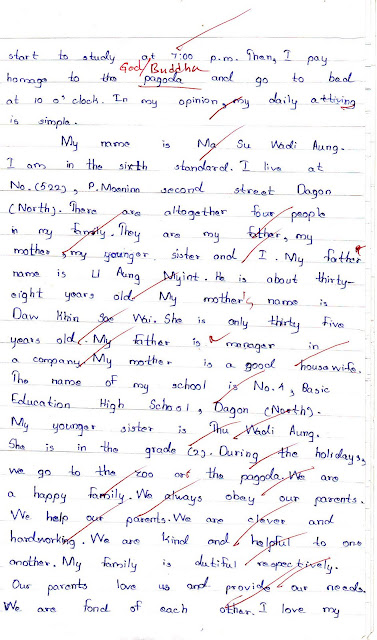 start to study at 7:00 p.m. Then, I pay
God/Buddha
homage to the pagoda and go to bed
at 10 o'clock. In my opinion, my daily attiving
is simple.
My name is Ma Su Wadi Aung.
I am in the sixth standard. I live at
No. (522), P. Moenine second street Dagon
(North). There are altogether four people
in my family. They are my father, my
mother, my younger sister and I. My father
name is U Aung Myint. He is about thirty-
eight years old. My mother's name is
Daw Khin Soe Wai. She is only thirty five
years old. My father is a manager in
a company. My mother is a good housewife.
The name of my school is No. 4, Basic
Education High School, Dagon (North).
My younger sister is Thu Wadi Aung.
She is in the grade (2). During the holidays,
we go to the zoo or the pagoda. We are
a happy family. We always obey our parents.
We help our parents. We are clever and
hardworking. We are kind and helpful to one
another. My family is dutiful respectively.
Our parents love us and provide our needs.
We are fond of each other. I love my